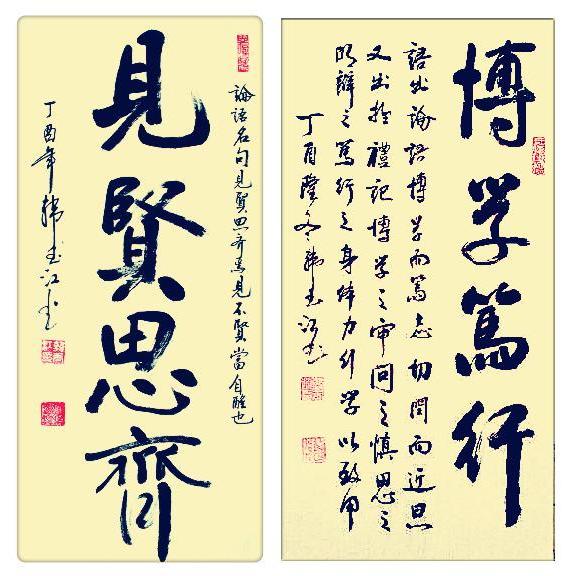 見賢思齊
論語名句見賢思齊焉見不賢當自醒也
丁酉年韩玉江书
博学篤行
語出論語博学而篤志切問而近思
又出於禮記博学之审问之慎思之
明辯之篤行之身体力行学以致用
丁酉隆冬韩玉江书